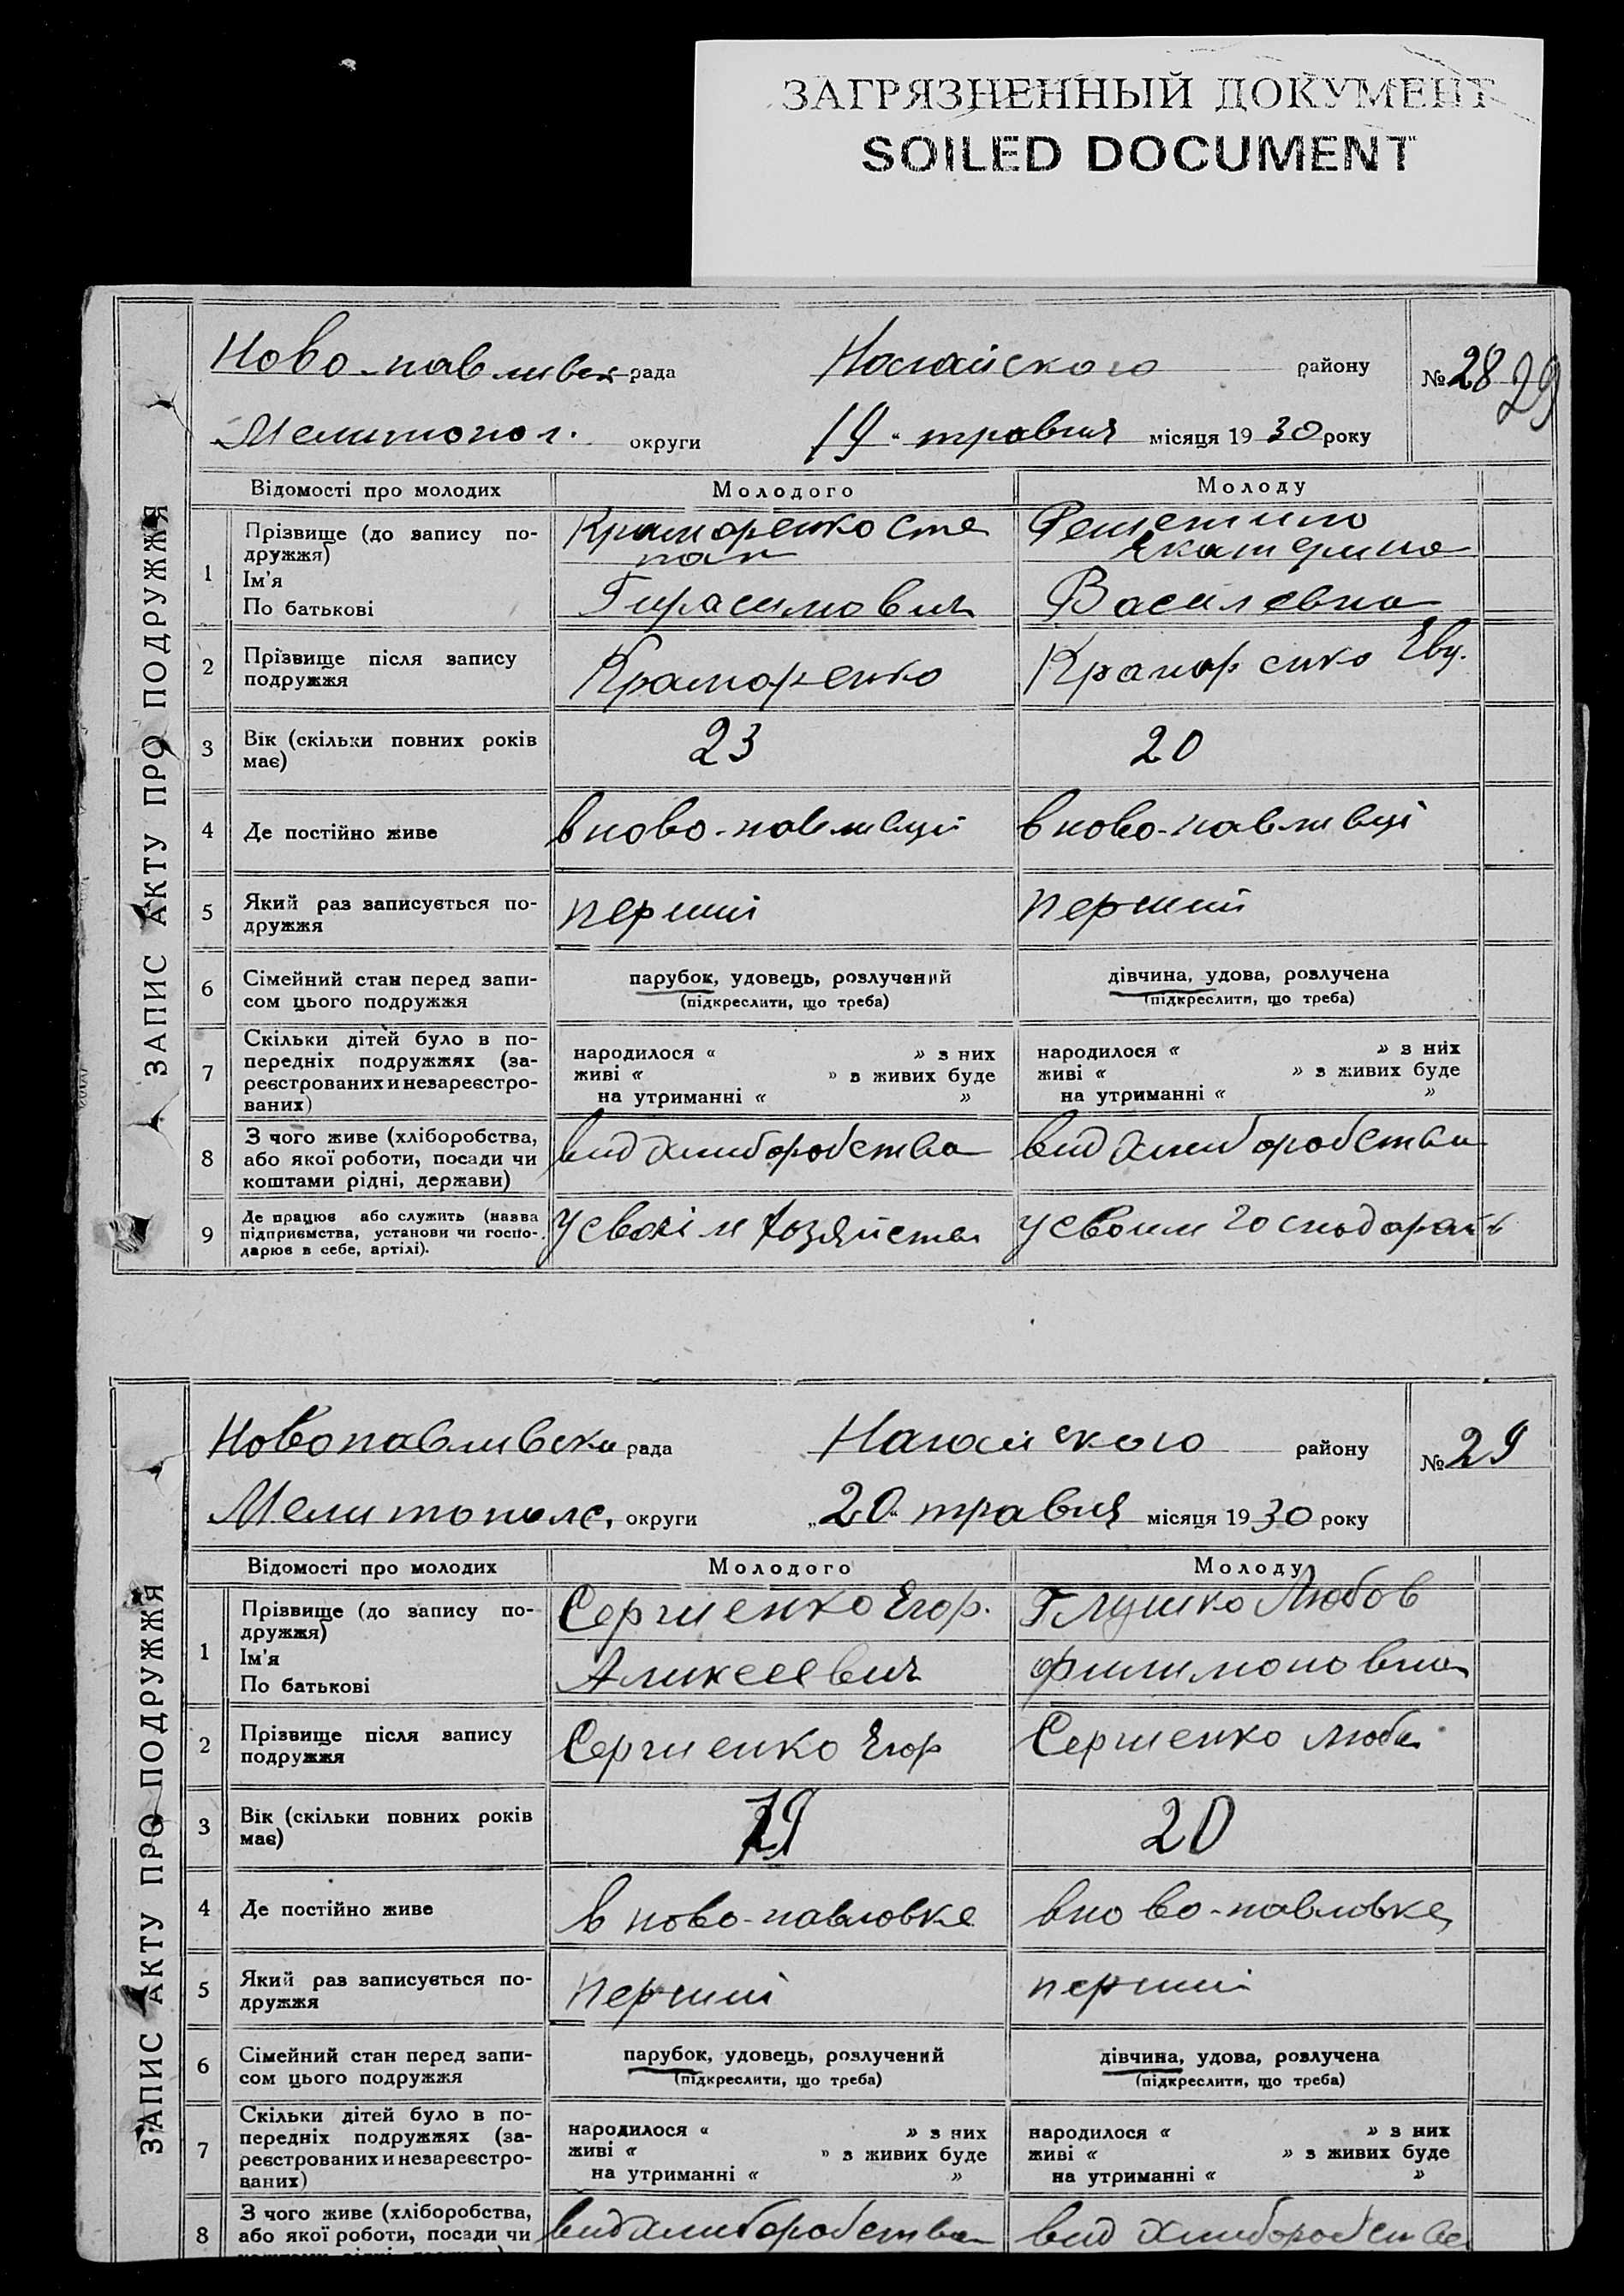 ЗАГРЯЗНЕННЫЙ ДОКУМЕНТ
SOILED DOCUMENT
ЗАПИС АКТУ ПРО ПОДРУЖЖЯ
Ново-павливск рада Нагайского району № 28 29
Мелитопол. округи 19 травня місяця 1930 року
Відомості про молодих Молодого Молоду
1 Прізвище (до запису по-
дружжя)
Ім'я
По батькові
Краморенко Сте
пан
Гирасимович
Екатерина
Василевна
2 Прізвище після запису
подружжя
Краморенко
Краморенко
3 Вік (скільки повних років
має)
23
20
4 Де постійно живе
в ново-павливці
в ново-павливці
5 Який раз записується по-
дружжя
перший
перший
6 Сімейний стан перед запи-
сом цього подружжя
парубок, удовець, розлучений
(підкреслити, що треба)
дівчина, удова, розлучена
(підкреслити, що треба)
7 Скільки дітей було в по-
передніх подружжях (за-
реєстрованих и незареєстро-
ваних)
народилося « » з них
живі « » з живих буде
на утриманні « »
народилося « » з них
живі « » з живих буде
на утриманні « »
8 З чого живе (хліборобства,
або якої роботи, посади чи
коштами рідні, держави)
вид хлиборобства
вид хлиборобства
9 Де працює або служить (назва
підприємства, установи чи госпо-
дарює в себе, артілі).
у своїм хозяйстві
у своим
ЗАПИС АКТУ ПРО ПОДРУЖЖЯ
Новопавливска рада Нагайского району № 29
округи „20" травня місяця 1930 року
Відомості про молодих Молодого Молоду
1 Прізвище (до запису по-
дружжя)
Ім'я
По батькові
Сергиенко Егор.
Аликсеевич
Глушко Любов
Филимоновна
2 Прізвище після запису
подружжя
Сергиенко Егор
Сергиенко Люба
3 Вік (скільки повних років
має)
20
4 Де постійно живе
в ново-павловке
в ново-павловке
5 Який раз записується по-
дружжя
перший
перший
6 Сімейний стан перед запи-
сом цього подружжя
парубок, удовець, розлучений
(підкреслити, що треба)
дівчина, удова, розлучена
(підкреслити, що треба)
7 Скільки дітей було в по-
передніх подружжях (за-
реєстрованих и незареєстро-
ваних)
народилося « » з них
живі « » з живих буде
на утриманні « »
народилося « » з них
живі « » з живих буде
на утриманні « »
8 З чого живе (хліборобства,
або якої роботи, посади чи
вид хлиборобства
вид хлиборобства